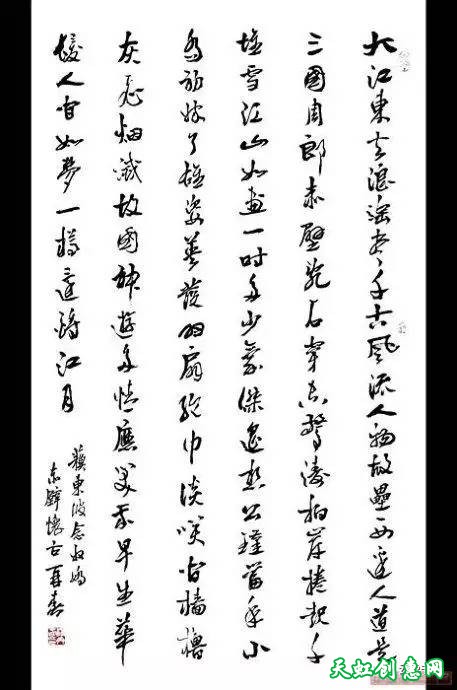 大江東去浪淘盡千古風流人物故壘西邊人道是
三國周郎赤壁亂石穿空驚濤拍岸捲起千
堆雪江山如畫一時多少豪傑遙想公瑾當年小
喬初嫁了雄姿英發羽扇綸巾談笑間檣櫓
灰飛煙滅故國神遊多情應笑我早生華
髮人間如夢一樽還酹江月
蘇東坡念奴嬌
赤壁懷古
天虹创意网